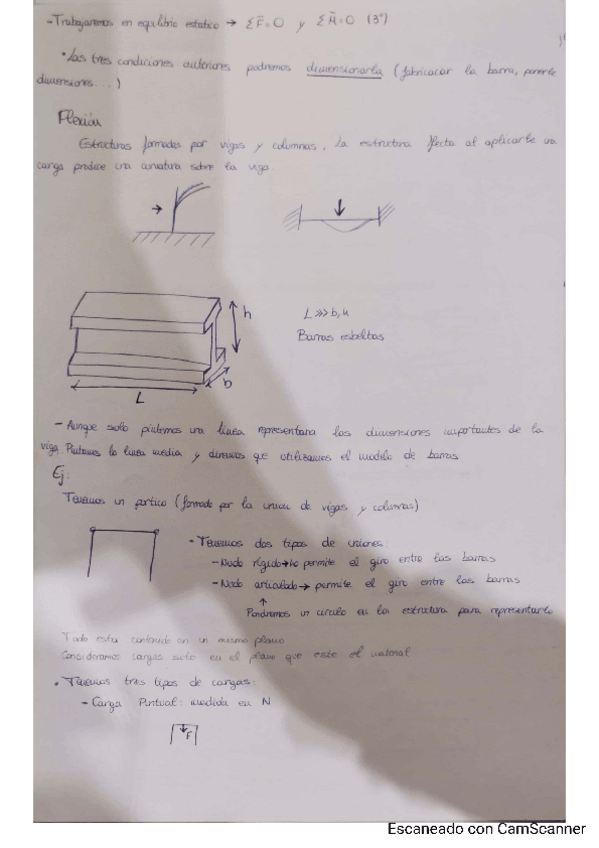 -Trabajaremos en equilibrio estatico → ΣF̄=0 y ΣM̄=0 (3º)
• Las tres condiciones anteriores podremos dimensionarla (fabricacar la barra, ponerle
dimensiones...)
Flexión
Estructuras formadas por vigas y columnas. La estructura flecta al aplicarle una
carga produce una curvatura sobre la viga.
h
b
L
L >>> b,h
Barras esbeltas
- Aunque solo pintemos una linea representara las dimensiones importantes de la
viga. Pintamos la linea media y diremos que utilizamos el modelo de barras
Ej:
Tenemos un portico (formado por la union de vigas y columnas)
- Tenemos dos tipos de uniones:
- Nodo rígido → no permite el giro entre las barras
- Nodo articulado → permite el giro entre las barras
↑
Pondremos un circulo en la estructura para representarlo
Todo esta contenido en un mismo plano
Consideramos cargas solo en el plano que este el material
• Tenemos tres tipos de cargas:
- Carga Puntual: medida en N
F
Escaneado con CamScanner